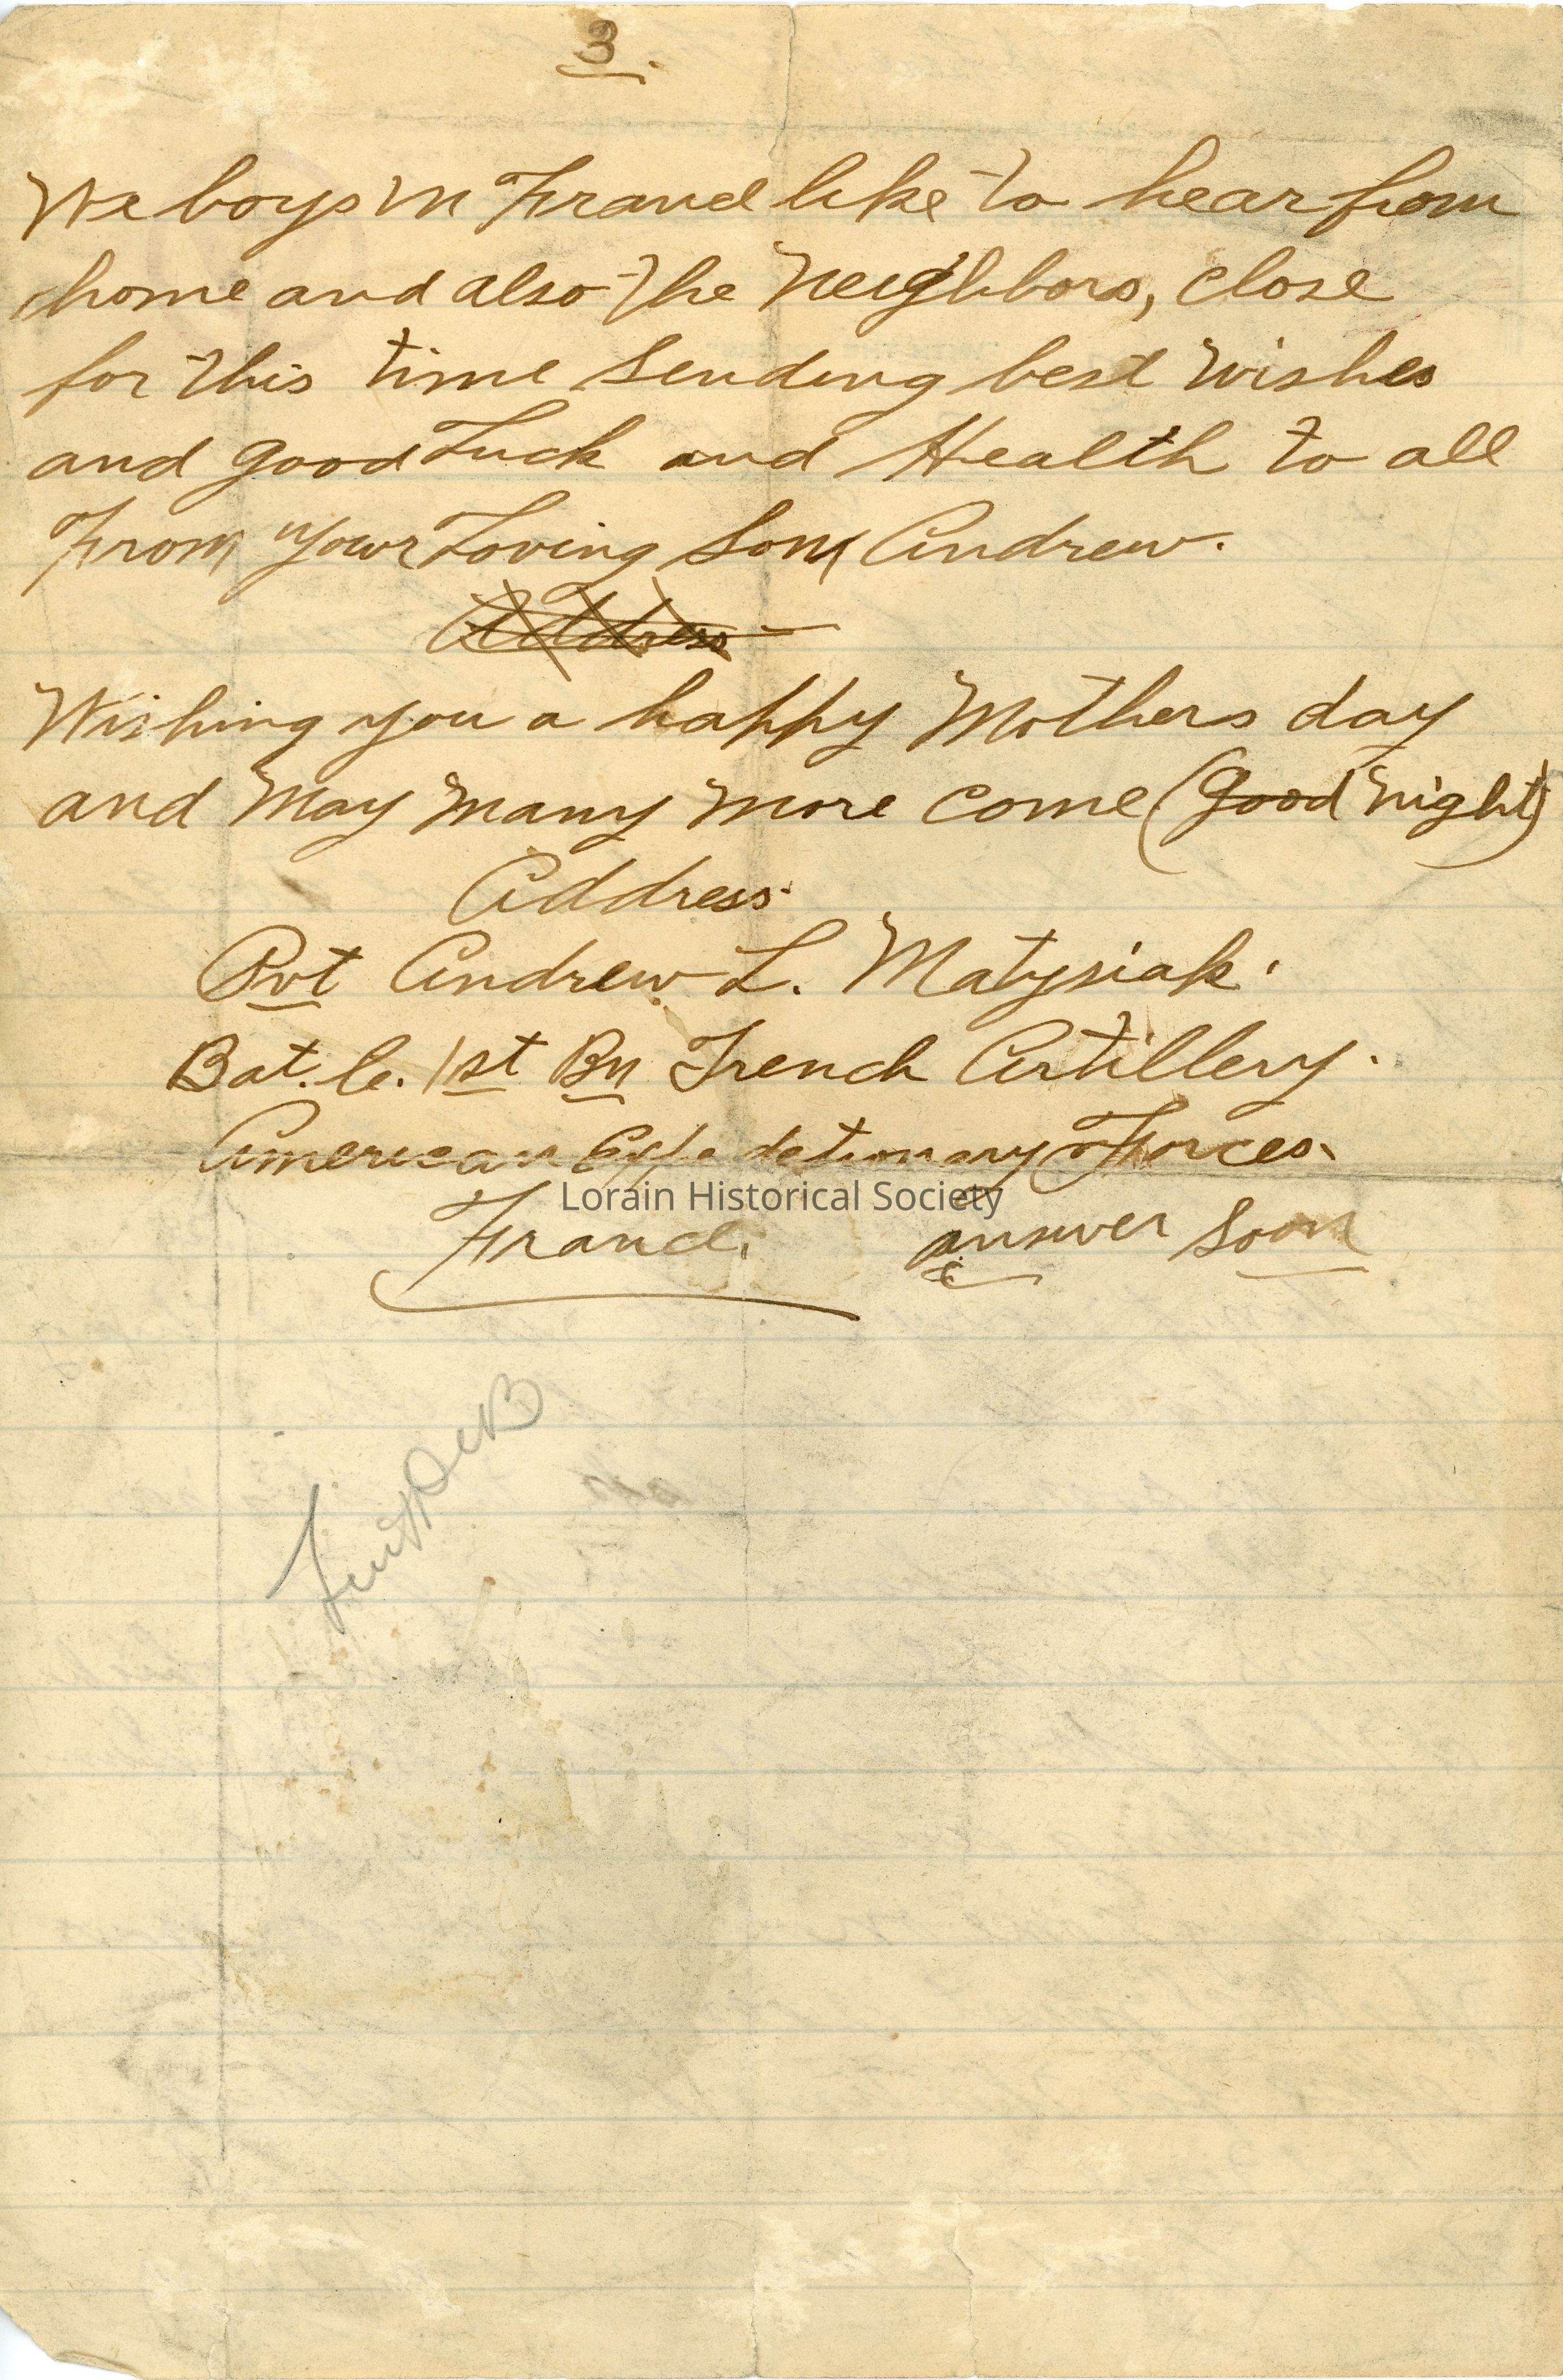 3.
We boys in France like to hear from
home and also the Neighbors, Close
for this time Sending best Wishes
and good Luck and Health to all
From Your Loving Son Andrew.
Address
Wishing you a happy Mothers day
and May Many More Come (Good Night)
Address.
Pvt Andrew L. Matysiak.
Bat. C. 1st Bn Trench Artillery.
American Expedetionary Forces.
Lorain Historical Society
France. answer Soon